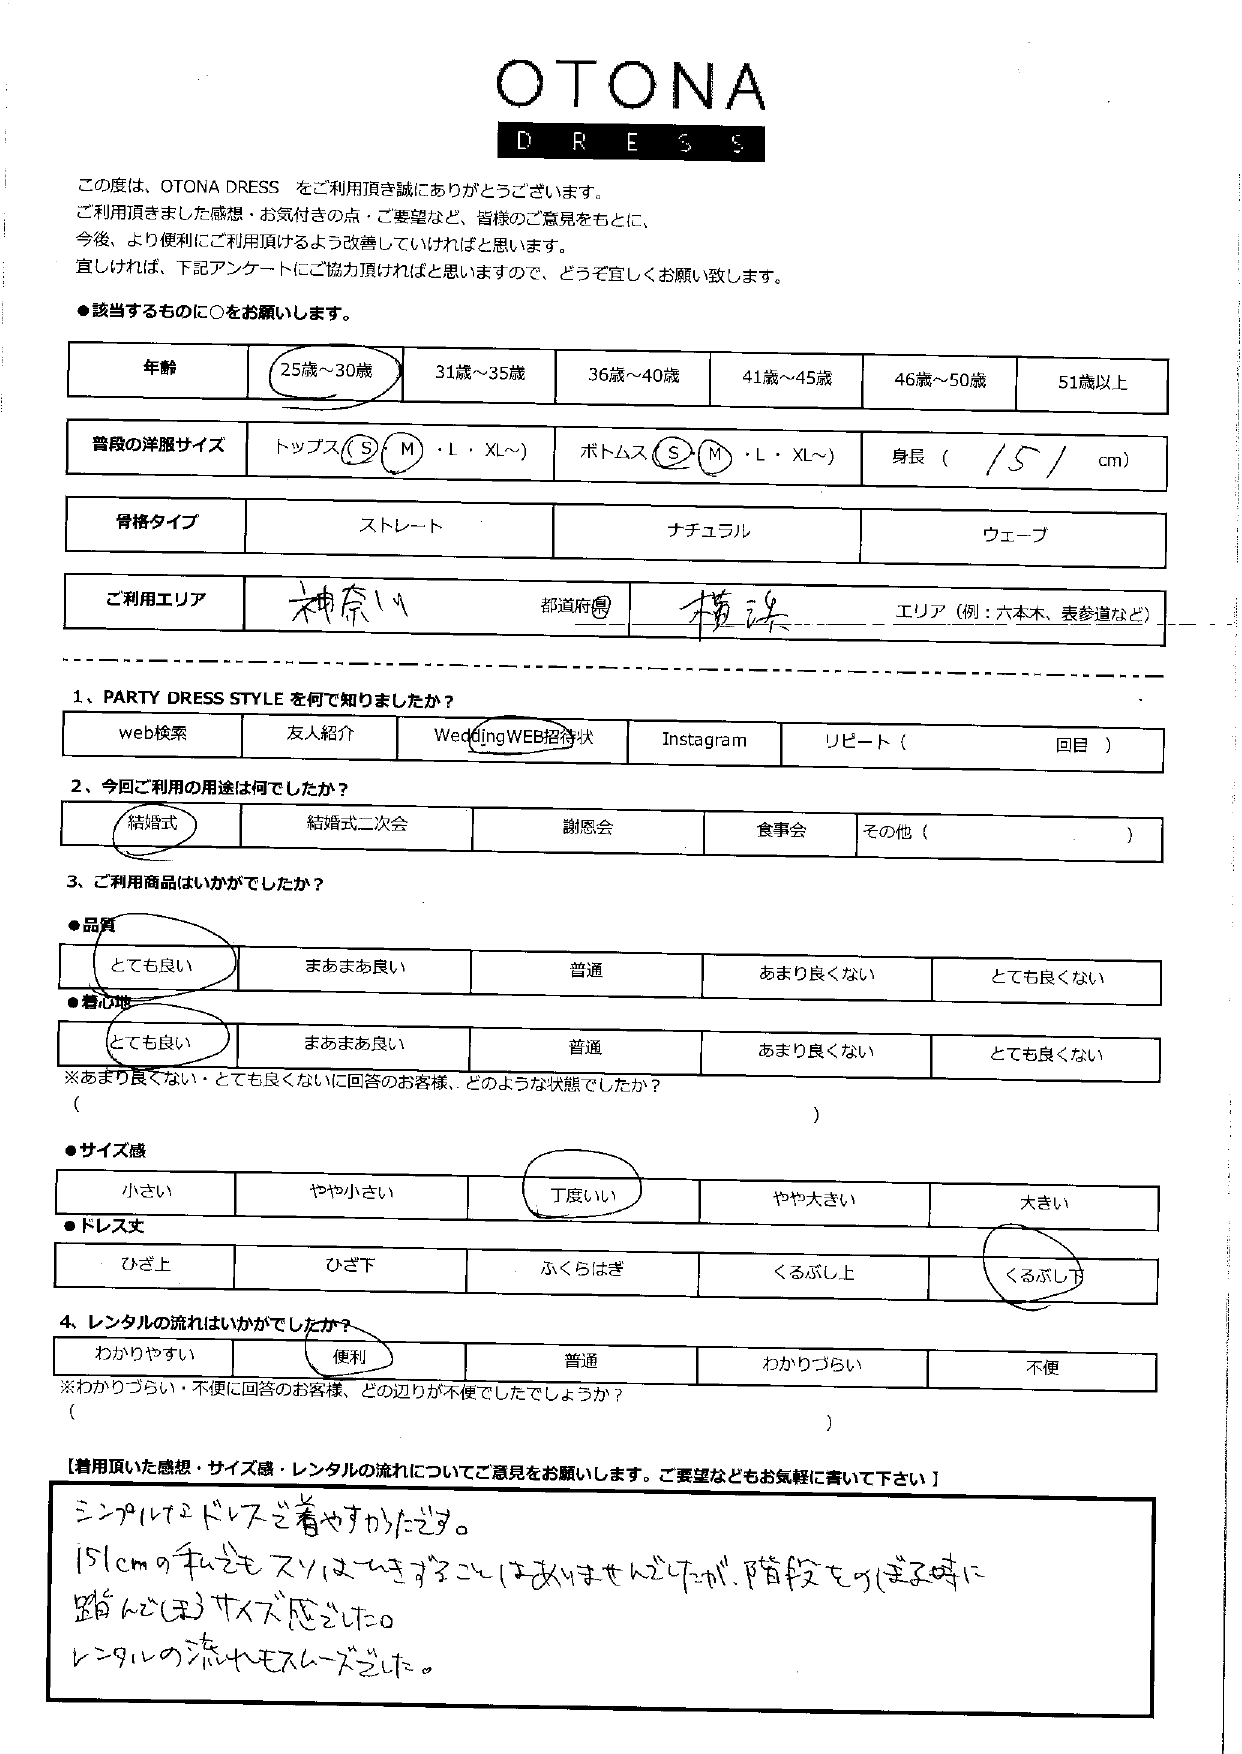 OTONA
DRESS
この度は、OTONA DRESS をご利用頂き誠にありがとうございます。
ご利用頂きました感想・お気付きの点・ご要望など、皆様のご意見をもとに、
今後、より便利にご利用頂けるよう改善していければと思います。
宜しければ、下記アンケートにご協力頂ければと思いますので、どうぞ宜しくお願い致します。
●該当するものに〇をお願いします。
年齢 25歳～30歳 31歳～35歳 36歳～40歳 41歳～45歳 46歳～50歳 51歳以上
普段の洋服サイズ トップス(S・M・L・XL～) ボトムス(S・M・L・XL～) 身長 ( 151 cm)
骨格タイプ ストレート ナチュラル ウェーブ
ご利用エリア 神奈川 都道府県 横浜 エリア（例：六本木、表参道など）
1、PARTY DRESS STYLE を何で知りましたか？
web検索 友人紹介 WeddingWEB招待状 Instagram リピート ( 回目 )
2、今回ご利用の用途は何でしたか？
結婚式 結婚式二次会 謝恩会 食事会 その他 ( )
3、ご利用商品はいかがでしたか？
●品質
とても良い まあまあ良い 普通 あまり良くない とても良くない
●着心地
とても良い まあまあ良い 普通 あまり良くない とても良くない
※あまり良くない・とても良くないに回答のお客様、どのような状態でしたか？
( )
●サイズ感
小さい やや小さい 丁度いい やや大きい 大きい
●ドレス丈
ひざ上 ひざ下 ふくらはぎ くるぶし上 くるぶし下
4、レンタルの流れはいかがでしたか？
わかりやすい 便利 普通 わかりづらい 不便
※わかりづらい・不便に回答のお客様、どの辺りが不便でしたでしょうか？
( )
【着用頂いた感想・サイズ感・レンタルの流れについてご意見をお願いします。ご要望などもお気軽に書いて下さい】
シンプルなドレスで着やすかったです。
151cmの私でもスソはひきずることはありませんでしたが、階段をのぼる時に
踏んでしまうサイズ感でした。
レンタルの流れもスムーズでした。